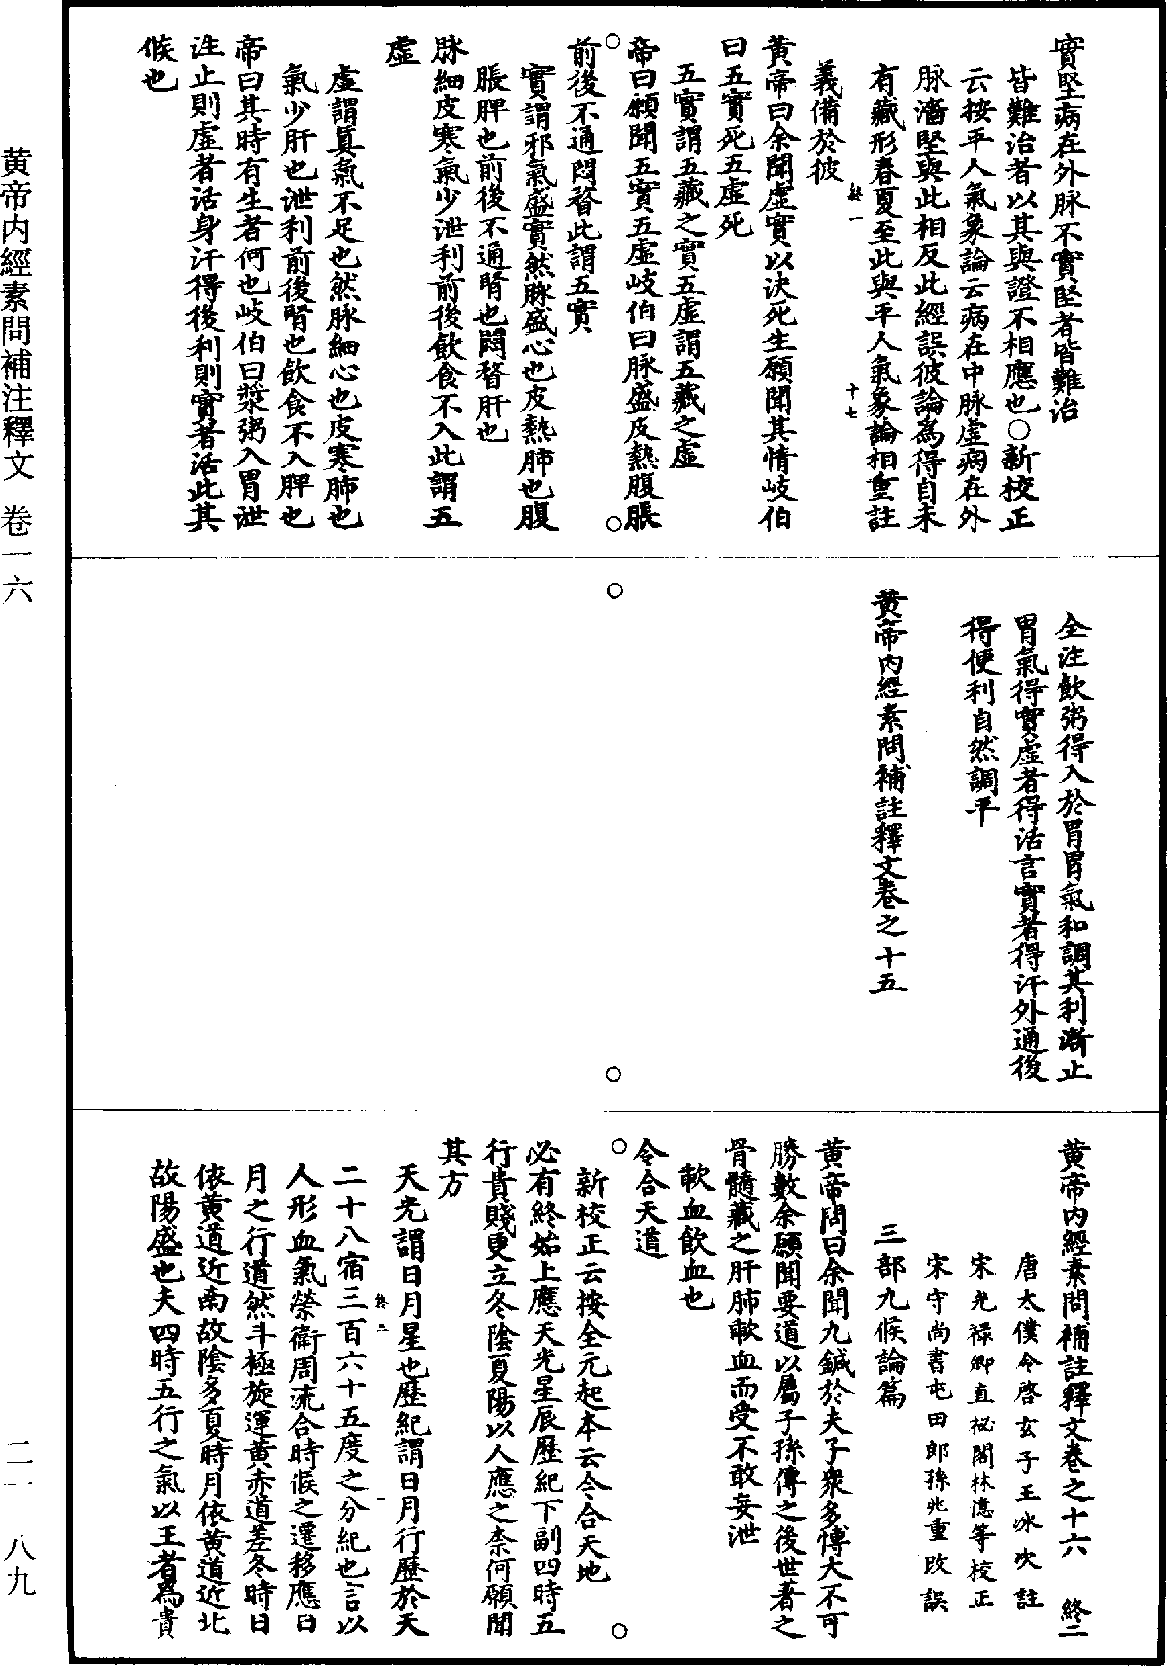 實堅病在外脉不實堅者皆難治
皆難治者以其與證不相應也○新校正
云按平人氣象論云病在中脉虛病在外
脉濇堅與此相反此經誤彼論為得自未
有藏形春夏至此與平人氣象論相重註
義備於彼
終一
十七
黃帝曰余聞虛實以決死生願聞其情岐伯
曰五實死五虛死
五實謂五藏之實五虛謂五藏之虛
帝曰願聞五實五虛岐伯曰脉盛皮熱腹脹
前後不通悶瞀此謂五實
實謂邪氣盛實然脉盛心也皮熱肺也腹
脹脾也前後不通腎也悶瞀肝也
脉細皮寒氣少泄利前後飲食不入此謂五
虛
虛謂真氣不足也然脉細心也皮寒肺也
氣少肝也泄利前後腎也飲食不入脾也
帝曰其時有生者何也岐伯曰漿粥入胃泄
注止則虛者活身汗得後利則實者活此其
候也
全注飲粥得入於胃胃氣和調其利漸止
胃氣得實虛者得活言實者得汗外通後
得便利自然調平
黃帝內經素問補註釋文卷之十五
黃帝內經素問補註釋文卷之十六 終二
唐太僕令啓玄子王冰次註
宋光祿卿直祕閣林億等校正
宋守尚書屯田郎孫兆重改誤
三部九候論篇
黃帝問曰余聞九鍼於夫子衆多博大不可
勝數余願聞要道以屬子孫傳之後世著之
骨髓藏之肝肺歃血而受不敢妄泄
歃血飲血也
令合天道
新校正云按全元起本云令合天地
必有終始上應天光星辰歷紀下副四時五
行貴賤更立冬陰夏陽以人應之柰何願聞
其方
天光謂日月星也歷紀謂日月行歷於天
二十八宿三百六十五度之分紀也言以
終二
一
人形血氣榮衛周流合時候之遷移應日
月之行道然斗極旋運黃赤道差冬時日
依黃道近南故陰多夏時月依黃道近北
故陽盛也夫四時五行之氣以王者為貴
黃帝內經素問補注釋文 卷一六
二一 八九